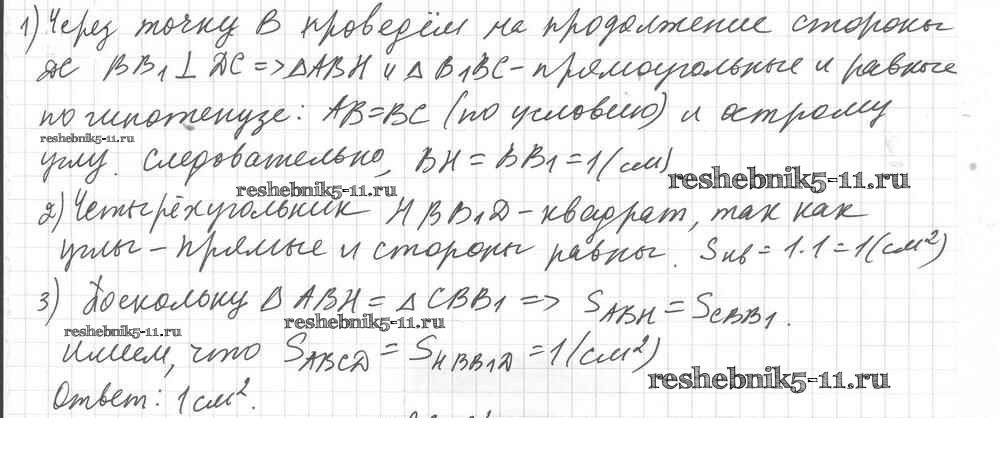 1) Через точку В проведём на продолжение стороны
ДС ВВ1 ⊥ DC => △ABH и △B1BC - прямоугольные и равные
по гипотенузе: AB=BC (по условию) и острому
reshebnik5-11.ru
углу. Следовательно, BH = BB1 = 1 (см)
reshebnik5-11.ru
reshebnik5-11.ru
2) Четырёхугольник HBB1D - квадрат, так как
углы - прямые и стороны равны. Sкв = 1·1 = 1 (см²)
3) Поскольку △ABH = △CBB1 => SABH = SCBB1.
reshebnik5-11.ru
reshebnik5-11.ru
Имеем, что SABCD = SHBB1D = 1 (см²)
reshebnik5-11.ru
Ответ: 1 см².